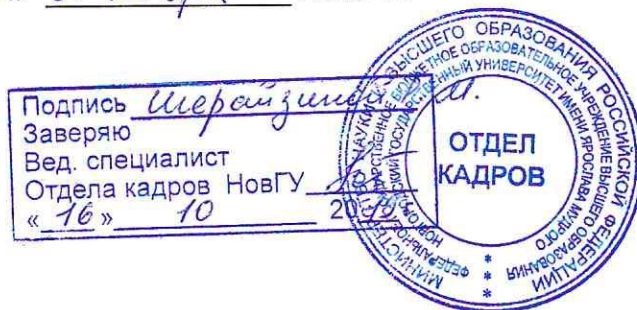 Подпись
Заверяю
Вед. специалист
Отдела кадров НовГУ
« 16 » 10 20
МИНИСТЕРСТВО НАУКИ И ВЫСШЕГО ОБРАЗОВАНИЯ РОССИЙСКОЙ ФЕДЕРАЦИИ
ФЕДЕРАЛЬНОЕ ГОСУДАРСТВЕННОЕ БЮДЖЕТНОЕ ОБРАЗОВАТЕЛЬНОЕ УЧРЕЖДЕНИЕ ВЫСШЕГО ОБРАЗОВАНИЯ
НОВГОРОДСКИЙ ГОСУДАРСТВЕННЫЙ УНИВЕРСИТЕТ ИМЕНИ ЯРОСЛАВА МУДРОГО
ОТДЕЛ
КАДРОВ